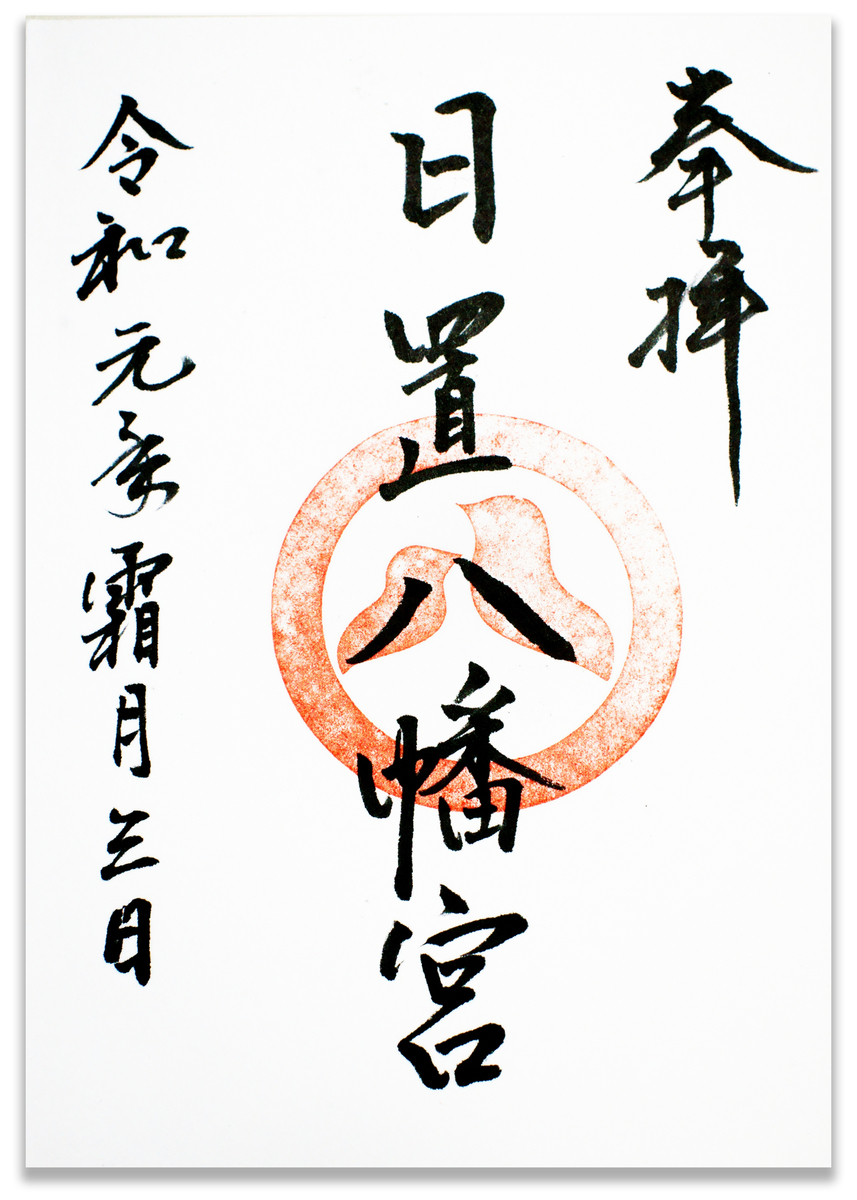 奉拝
日置八幡宮
令和元年霜月三日